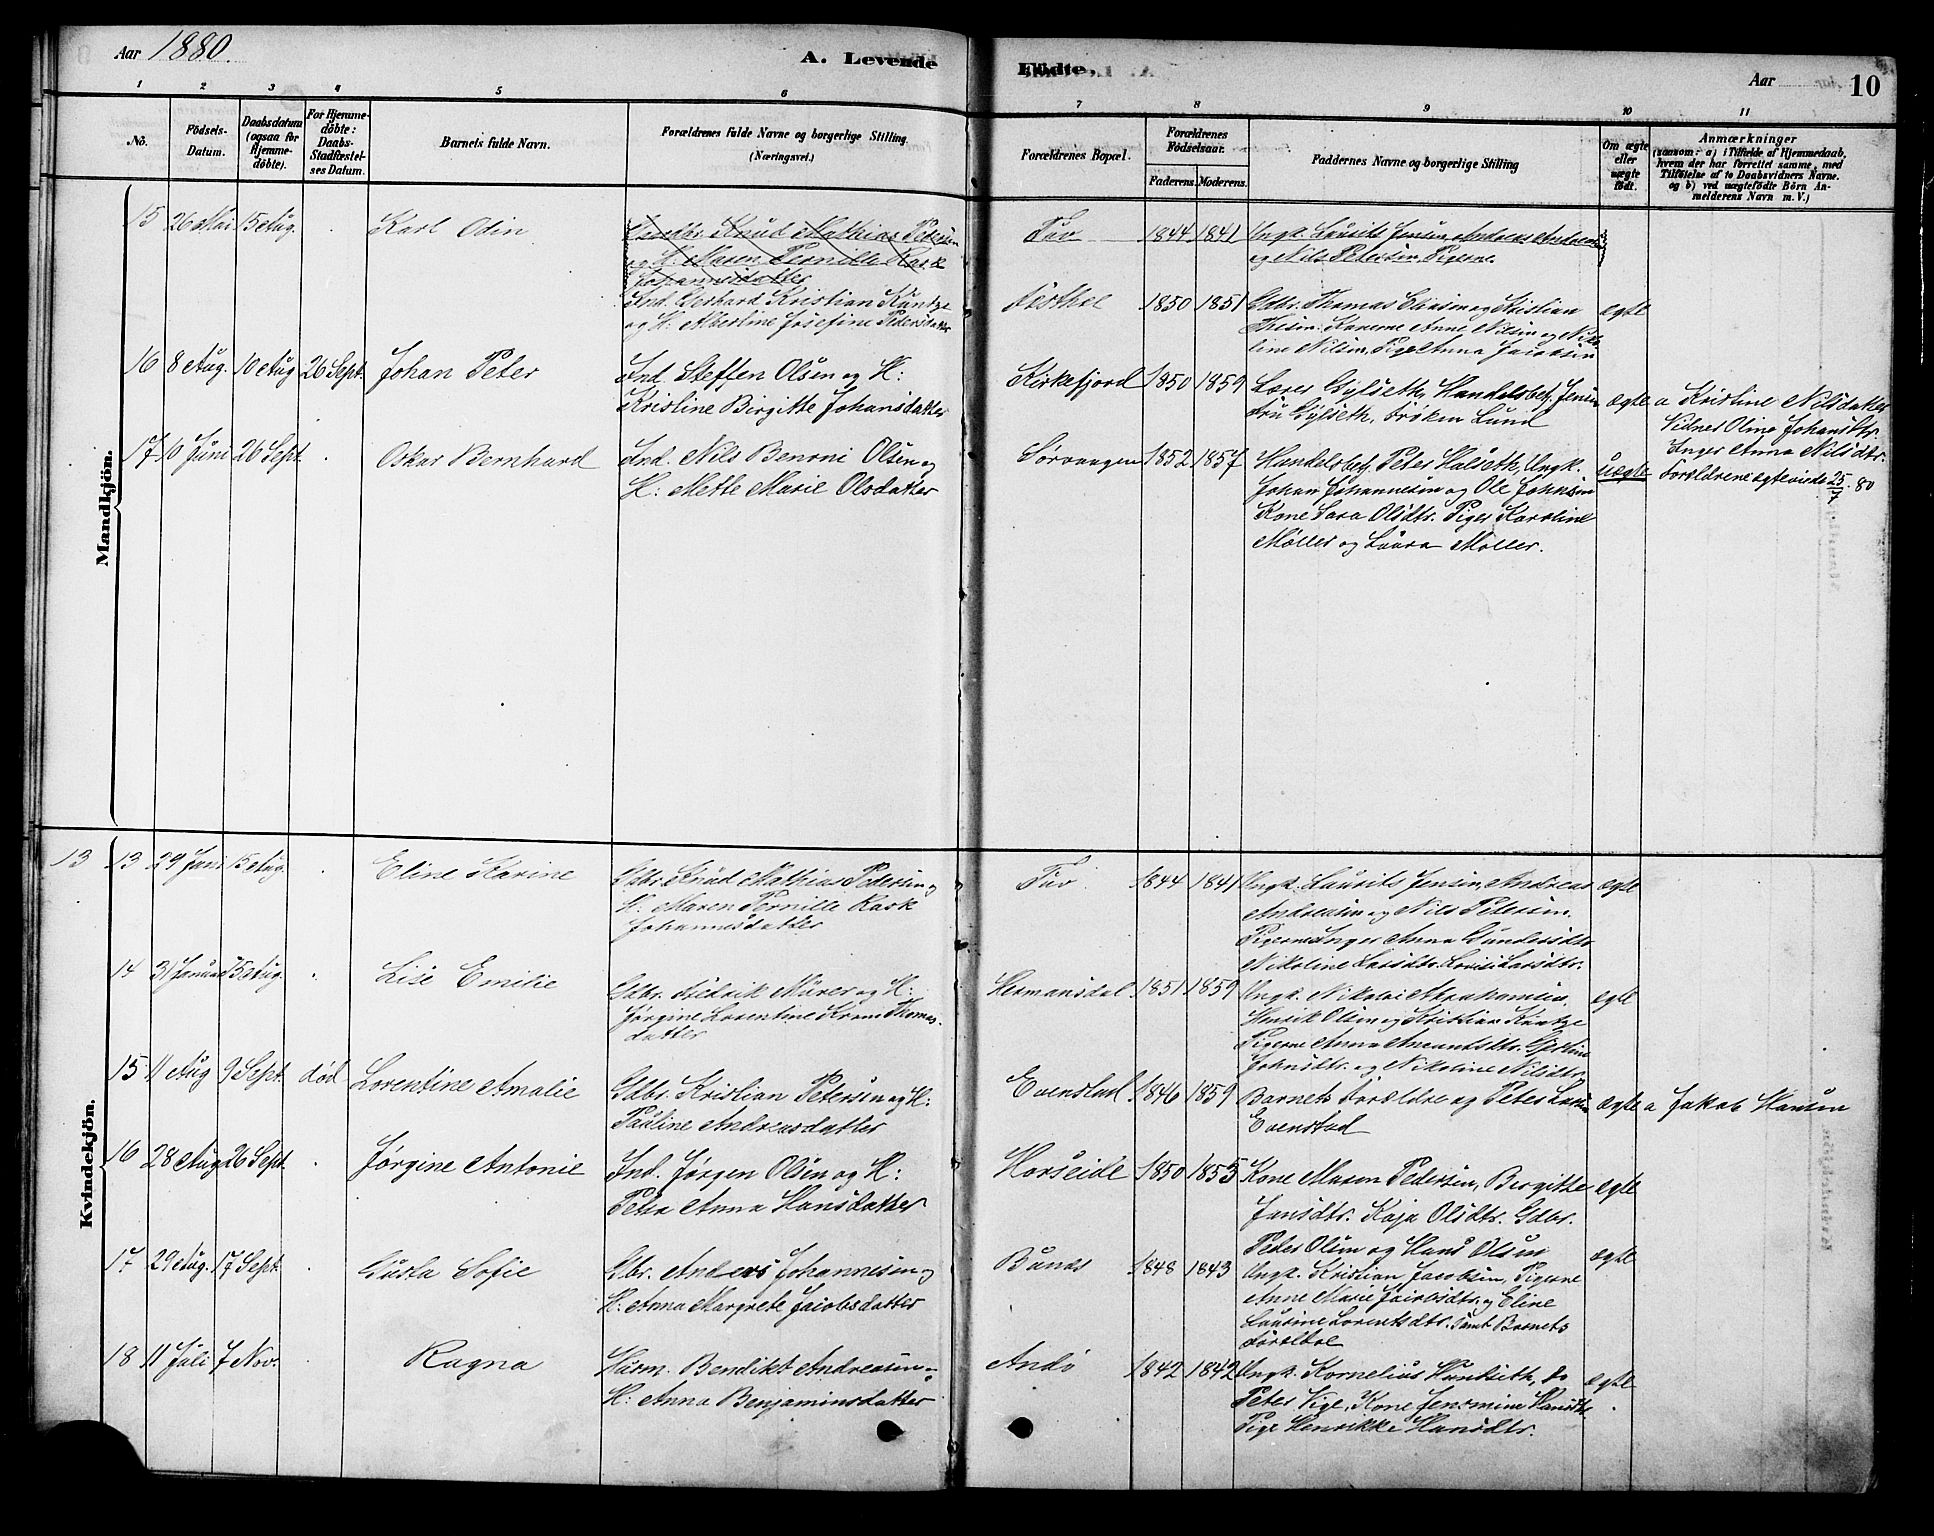 Aar 1880. A. Levende Födte, Aar 10
1 2 3 4 5 6 7 8 9 10 11
No.
Födsels-Datum.
Daabsdatum (ogsaa for Hjemmedöbte).
For Hjemmedöbte: Daabs-Stadfæstelses Datum.
Barnets fulde Navn.
Forældrenes fulde Navne og borgerlige Stilling
(Næringsvei.)
Forældrenes Bopæl.
Forældrenes Födselsaar.
Faderens. Moderens.
Faddernes Navne og borgerlige Stilling
Om ægte eller uægte födt.
Anmærkninger
(saasom: a) i Tilfælde af Hjemmedaab,
hvem der har forrettet samme, med
Tilföielse af to Daabsvidners Navne.
og b) ved uægtefödte Börn An-
melderens Navn m. V.)
Mandkjön.
15 26 Mai 15 Aug. Karl Odin
Gaardbr. Knud Mathias Pedersen
og H. Maren Pernille Rask
Johannesdatter
Ind. Gerhard Kristian Küntze
og H. Albertine Josefine Pedersdatter
Tuv 1844 1841 Ungk. Laurits Jensen, Andreas Andreasen
og Nils Petersen, Pigerne
1850 1851 Gdbr. Thomas Eliasen og Kristian
ægte
line Nilsen, Pige Anna Jacobsen
16 8 Aug. 10 Aug 26 Sept. Johan Peter
Ind. Steffen Olsen og H:
Kristine Birgitte Johansdatter
Kirkefjord 1850 1859 Lærer Gylseth, Handelsbetj. Jensen
Fru Gylseth, Frøken Lund
ægte a Kristine Nilsdatter
Vidner Oline Johansdtr.
Inger Anna Nilsdtr.
17 10 Juni 26 Sept. Oskar Bernhard
Ind. Nils Benoni Olsen og
H: Mette Marie Olsdatter
Sørvaagen 1852 1857 Handelsbetj. Peter Halseth, Ungk.
Johan Johannesen og Ole Johnsen
Kone Sara Olsdtr. Piger Karoline
Møller og Laura Møller.
uægte Forældrene ægteviede 25/7. 80
Kvindekjön.
13 13 29 Juni 15 Aug. Eline Karine
Gdbr. Knud Mathias Pedersen og
H: Maren Pernille Rask
Johannesdatter
Tuv 1844 1841 Ungk. Laurits Jensen, Andreas
Andreasen og Nils Petersen.
Pigerne Inger Anna Gundersdtr
Nikoline Larsdtr. Lovise Larsdtr.
ægte
14 31 Januar 15 Aug. Lise Emilie
Gdbr. Fredrik Mürer og H:
Jørgine Lorentine Krane Thomas-
datter
Hermansdal 1851 1859 Ungk. Nikolai Abrahamsen,
Henrik Olsen og Kristian Küntze
Pigerne Anna Amundsdtr.
Johnsdtr. og Nikoline Nilsdtr.
ægte
15 11 Aug 9 Sept. død Lorentine Amalie
Gdbr. Kristian Petersen og H:
Pauline Andreasdatter
Evenstad 1846 1859 Barnets Forældre og Peter Larsen
Evenstad
ægte a Jakob Hansen
16 28 Aug 26 Sept. Jørgine Antonie
Ind. Jørgen Olsen og H:
Petra Anna Hansdatter
Horseide 1850 1855 Kone Maren Pedersen, Birgitte
Jansdtr. Kaja Olsdtr. Gdbr.
Peter Olsen og Hans Olsen
ægte
17 29 Aug. 17 Sept. Gusta Sofie
Gbr. Anders Johannesen og
H: Anna Margrete Jacobsdatter
Bunes 1848 1843 Ungk. Kristian Jacobsen, Pigerne
Anne Marie Jacobsdtr. og Eline
Laurine Lorentsdtr. samt Barnets
Forældre
ægte
18 11 Juli 7 Nov. Ragna
Husm. Bendikt Andreasen og
H: Anna Benjaminsdatter
Andø 1842 1842 Ungk. Kornelius Hunseth, do
Peter Vige, Kone Jensmine Hansdtr
Pige Henrikke Hansdtr.
ægte